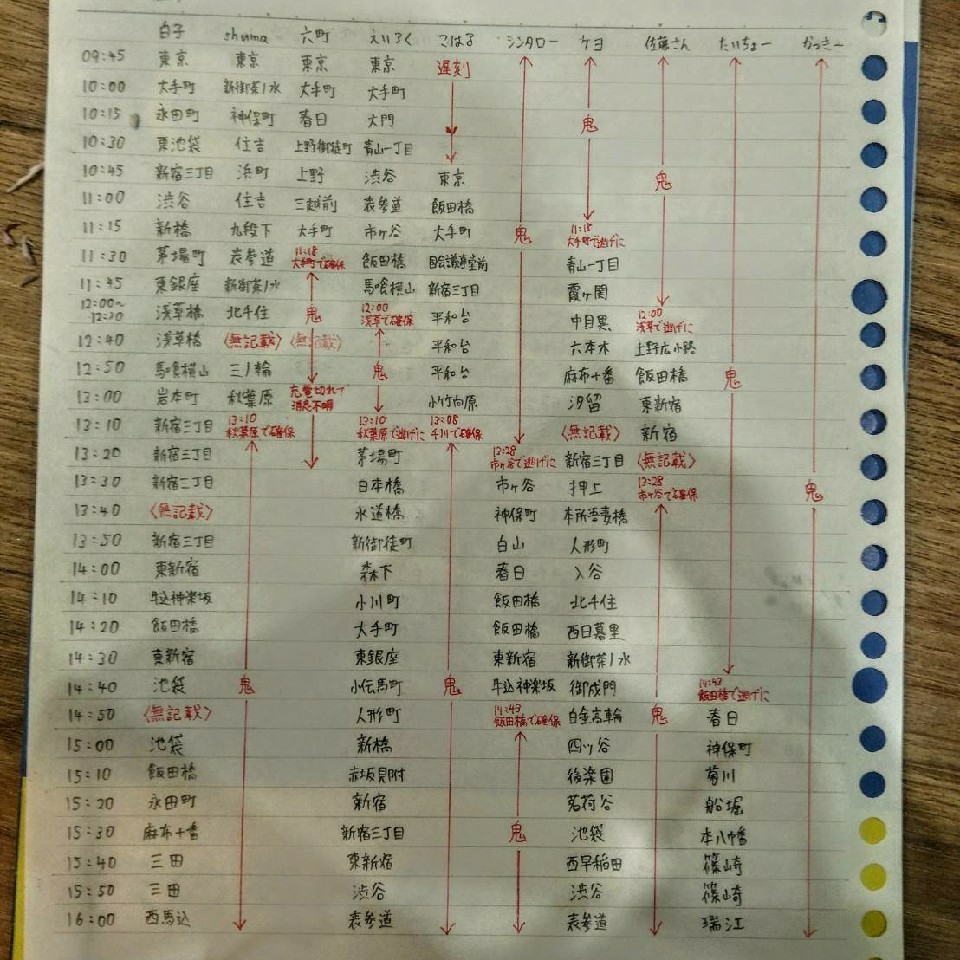 白子 shuma 六町 えいろく こはる シンタロー ケヨ 佐藤さん たいちょー かっきー
09:45 東京 東京 東京 東京 遅刻
10:00 大手町 新御茶ノ水 大手町 大手町
10:15 永田町 神保町 春日 大門 鬼
10:30 東池袋 住吉 上野御徒町 青山一丁目
10:45 新宿三丁目 浜町 上野 渋谷 東京 鬼
11:00 渋谷 住吉 三越前 表参道 飯田橋
11:15 新橋 九段下 大手町 市ヶ谷 大手町 鬼 11:18 大手町で逃げに
11:30 茅場町 表参道 11:18 大手町で確保 飯田橋 国会議事堂前 青山一丁目
11:45 東銀座 新御茶ノ水 馬喰横山 新宿三丁目 霞ヶ関
12:00~12:30 浅草橋 北千住 鬼 12:00 浅草で確保 平和台 中目黒 12:00 浅草で逃げに
12:40 浅草橋 〈無記載〉 〈無記載〉 平和台 六本木 上野広小路
12:50 馬喰横山 三ノ輪 鬼 平和台 麻布十番 飯田橋 鬼
13:00 岩本町 秋葉原 充電切れで消息不明 小竹向原 汐留 東新宿
13:10 新宿三丁目 13:10 秋葉原で確保 13:10 秋葉原で逃げに 13:08 千川で確保 〈無記載〉 新宿
13:20 新宿三丁目 茅場町 13:28 市ヶ谷で逃げに 新宿三丁目 〈無記載〉
13:30 新宿三丁目 日本橋 市ヶ谷 押上 13:28 市ヶ谷で確保 鬼
13:40 〈無記載〉 水道橋 神保町 本所吾妻橋
13:50 新宿三丁目 新御徒町 白山 人形町
14:00 東新宿 森下 春日 入谷
14:10 牛込神楽坂 小川町 飯田橋 北千住
14:20 飯田橋 大手町 飯田橋 西日暮里
14:30 東新宿 東銀座 東新宿 新御茶ノ水
14:40 池袋 鬼 小伝馬町 鬼 牛込神楽坂 御成門 14:43 飯田橋で逃げに
14:50 〈無記載〉 人形町 14:43 飯田橋で確保 白金高輪 鬼 春日
15:00 池袋 新橋 四ツ谷 神保町
15:10 飯田橋 赤坂見附 後楽園 菊川
15:20 永田町 新宿 茗荷谷 船堀
15:30 麻布十番 新宿三丁目 鬼 池袋 本八幡
15:40 三田 東新宿 西早稲田 篠崎
15:50 三田 渋谷 渋谷 篠崎
16:00 西馬込 表参道 表参道 瑞江